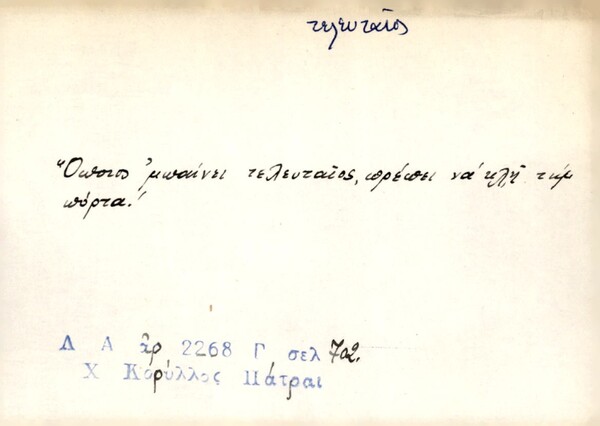 τελευταῖος
Ὅποιος ᾽μπαίνει τελευταῖος, πρέπει νά κλῇ τήμ
πόρτα!
Λ Α ἀρ 2268 Γ σελ 702.
Χ Κορύλλος Πάτραι